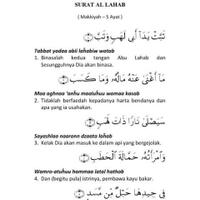 SURAT AL LAHAB
( Makkiyah – 5 Ayat )
تَبَّتْ يَدَا أَبِي لَهَبٍ وَتَبَّ ۝
Tabbat yadaa abii lahabiw watab
1. Binasalah kedua tangan Abu Lahab dan
Sesungguhnya Dia akan binasa.
مَا أَغْنَى عَنْهُ مَالُهُ وَمَا كَسَبَ ۝
Maa aghnaa 'anhu maaluhuu wamaa kasab
2. Tidaklah berfaedah kepadanya harta bendanya dan
apa yang ia usahakan.
سَيَصْلَى نَارًا ذَاتَ لَهَبٍ ۝
Sayashlaa naaron dzaata lahab
3. Kelak Dia akan masuk ke dalam api yang bergejolak.
وَامْرَأَتُهُ حَمَّالَةَ الْحَطَبِ ۝
Wamro-atuhuu hammaa latal hathab
4. Dan (begitu pula) istrinya, pembawa kayu bakar.
فِي جِيدِهَا حَبْلٌ مِنْ مَسَدٍ ۝